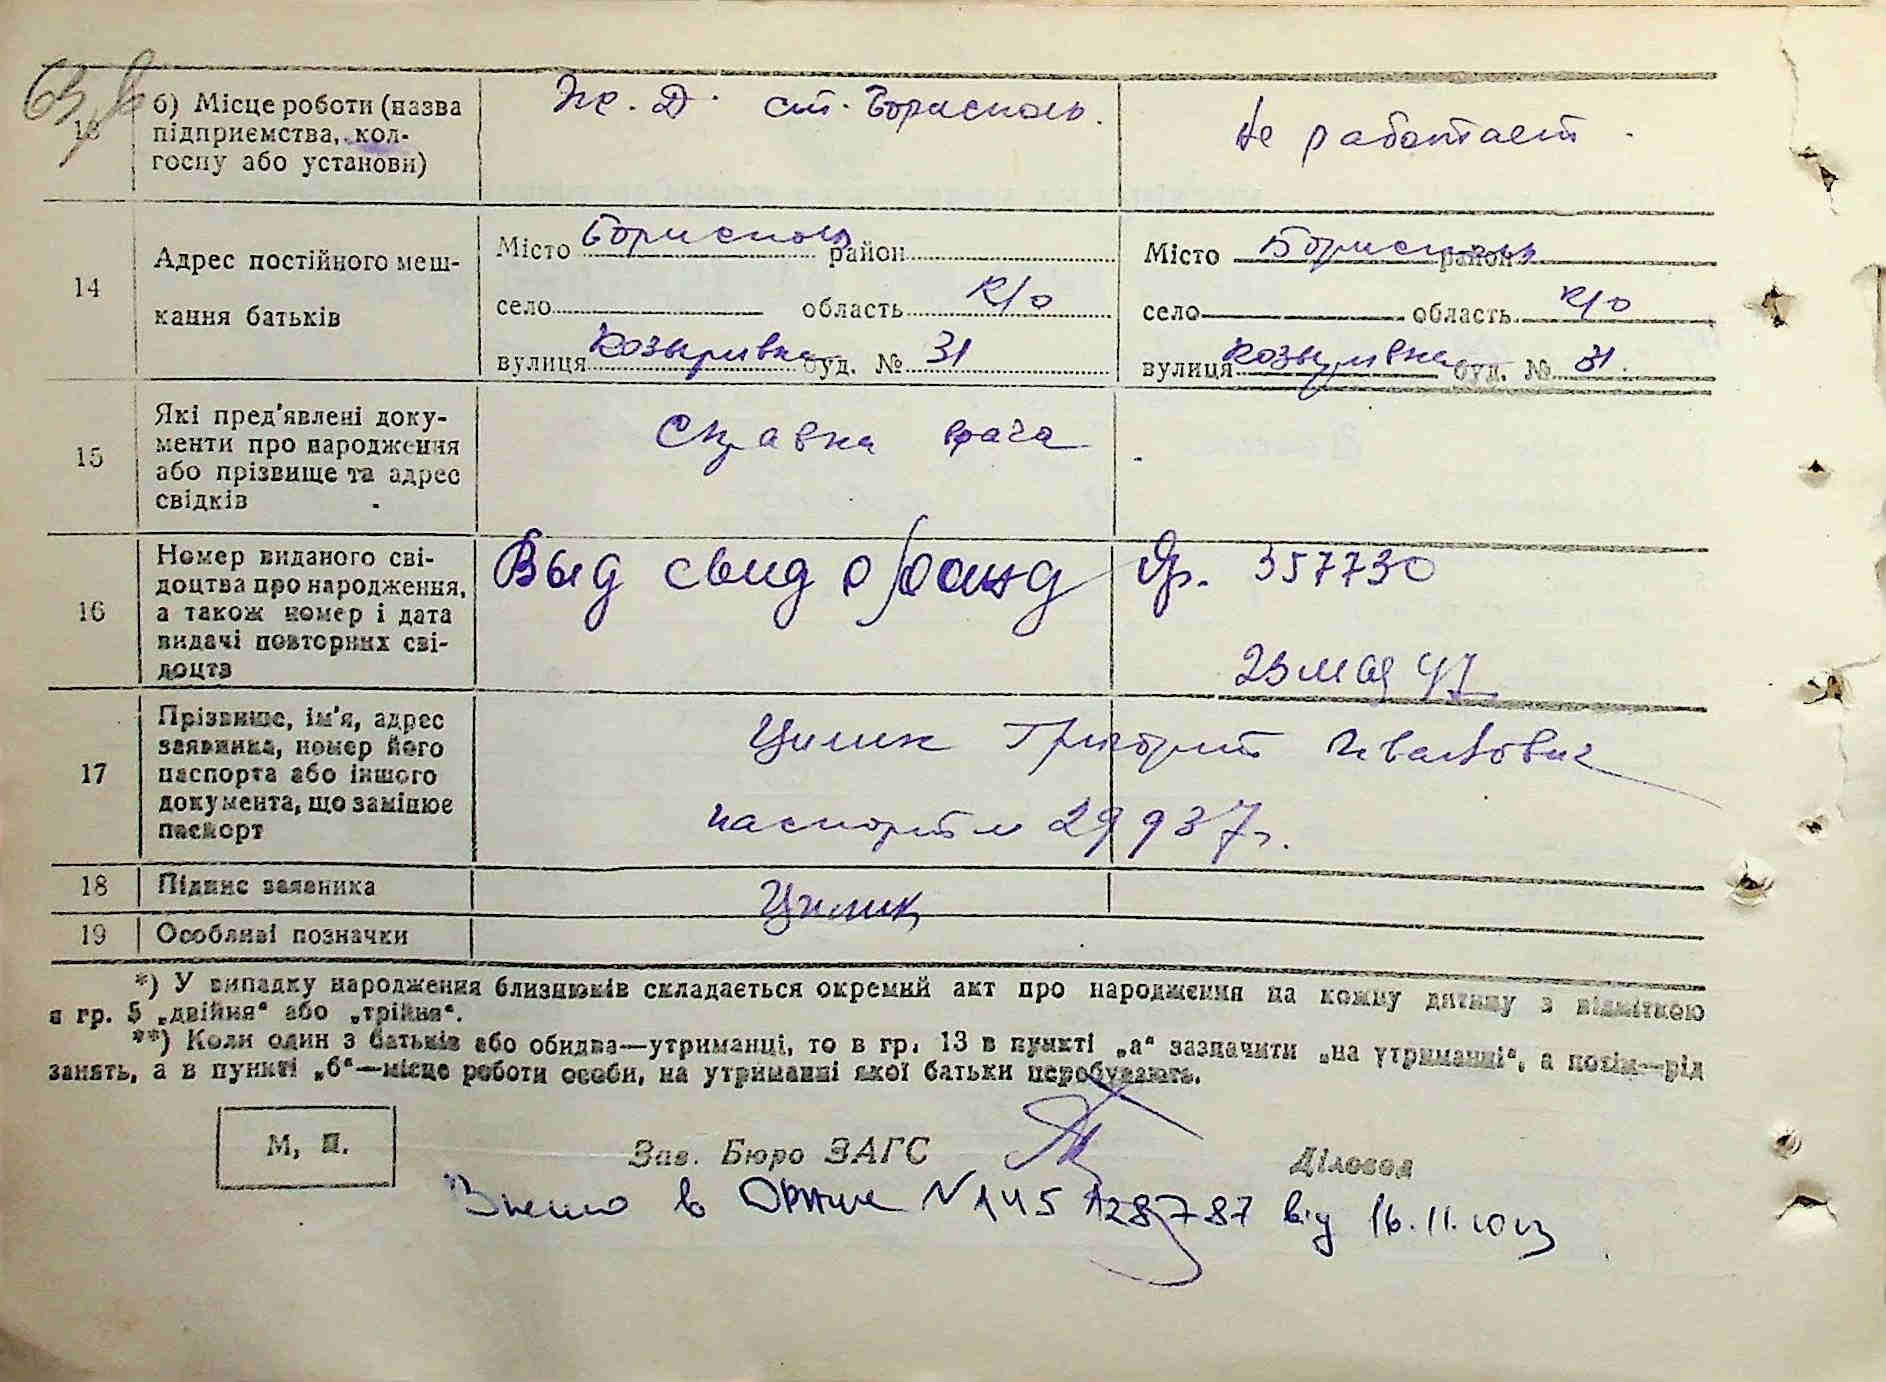 13 б) Місце роботи (назва підприємства, кол-
госпу або установи)
Ж. Д. ст. Борисполь.
Не работает.
14 Адрес постійного меш-
кання батьків
Місто Борисполь район
село область К/о
вулиця Козыривка буд. № 31
Місто Борисполь район
село область К/о
вулиця Козыривка буд. № 31.
15 Які пред'явлені доку-
менти про народження
або прізвище та адрес
свідків
Справка врача
16 Номер виданого сві-
доцтва про народження,
а також номер і дата
видачі повторних сві-
доцтв
Выд свид о рожд Яр. 357730
23 мая 47
17 Прізвище, ім'я, адрес
заявника, номер його
паспорта або іншого
документа, що замінює
паспорт
Цилик Григорий Иванович
паспорт № 29937
18 Підпис заявника
Цилик
19 Особливі позначки
*) У випадку народження близнюків складається окремий акт про народження на кожну дитину з відміткою
в гр. 5 „двійня“ або „трійня“.
**) Коли один з батьків або обидва—утриманці, то в гр. 13 в пункті „а“ зазначити „на утриманні“, а потім—рід
занять, а в пункті „б“—місце роботи особи, на утриманні якої батьки перебувають.
М. П.
Зав. Бюро ЗАГС
Діловод
Внесено в від 16.11.